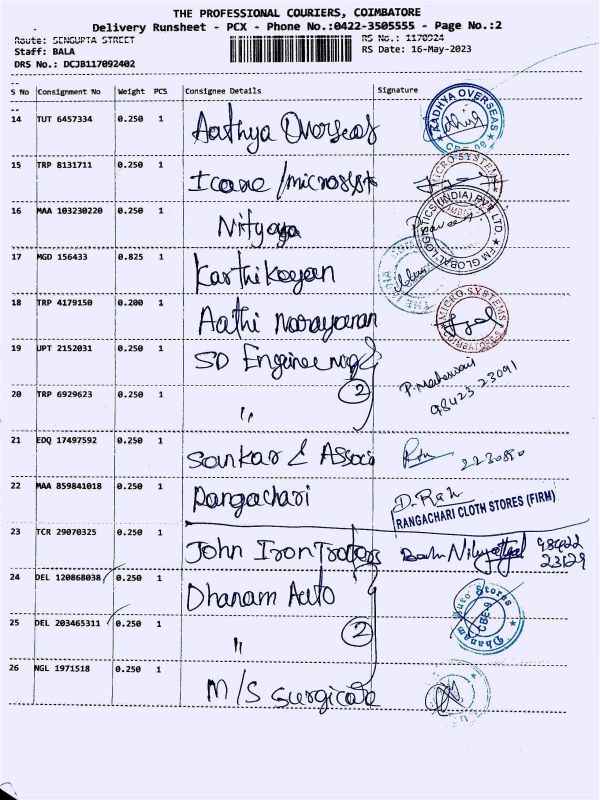 THE PROFESSIONAL COURIERS, COIMBATORE
Delivery Runsheet - PCX - Phone No.:0422-3505555 - Page No.:2
Route: SENGUPTA STREET RS No.: 1170924
Staff: BALA RS Date: 16-May-2023
DRS No.: DCJB117092402
S No Consignment No Weight PCS Consignee Details Signature
14 TUT 6457334 0.250 1 Aathya Overseas AADHYA OVERSEAS
15 TRP 8131711 0.250 1 MICRO SYSTEMS
16 MAA 103230220 0.250 1 Nityaya FM GLOBAL LOGISTICS (INDIA) PVT LTD
17 MGD 156433 0.825 1 Karthikeyan
18 TRP 4179150 0.200 1 Aathi Narayanan MICRO SYSTEMS
19 UPT 2152031 0.250 1 SD Engineering
20 TRP 6929623 0.250 1 " 2 98423 23091
21 EDQ 17497592 0.250 1 Sankar & Assoc
22 MAA 859841018 0.250 1 Rangachari RANGACHARI CLOTH STORES (FIRM)
23 TCR 29070325 0.250 1 John Iron Traders 98422 23129
24 DEL 120868038 0.250 1 Dhanam Auto Dhanam Auto Stores
25 DEL 203465311 0.250 1 " 2
26 NGL 1971518 0.250 1 M/S Surgicals